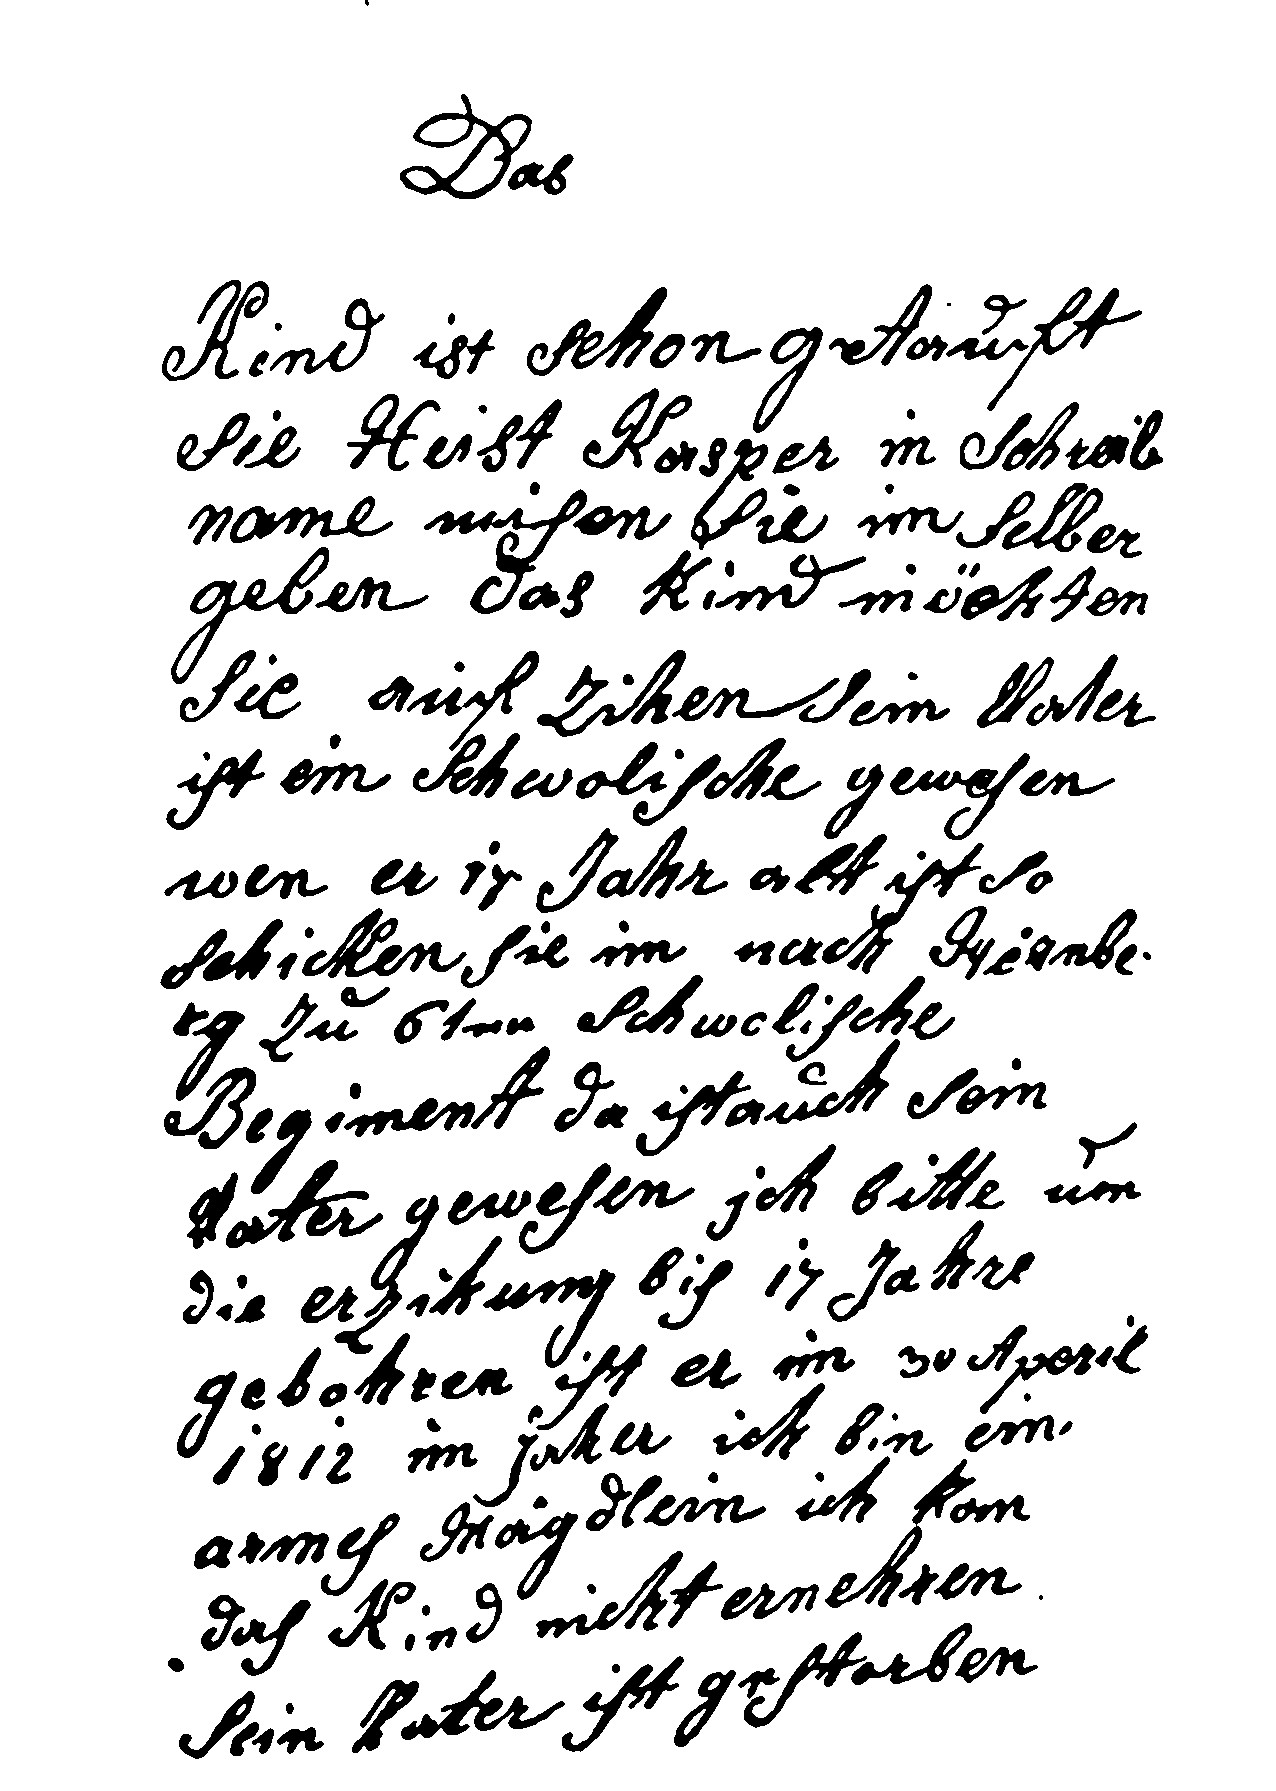 Das
Kind ist schon getauft
Sie Heist Kasper in Schreib
name misen Sie im Selber
geben das Kind möchten
Sie auf Zihen Sein Vater
ist ein Schwolische gewesen
wen er 17 Jahr alt ist so
schicken sie im nach Nirnbe-
rg Zu 6ten Schwolische
Begiment da ist auch sein
Vater gewesen ich bitte um
die erzikung bis 17 Jahre
gebohren ist er im 30 Aperil
1812 im Jaher ich bin ein
armes Mägdlein ich kan
das Kind nicht ernehren
Sein Vater ist gestorben